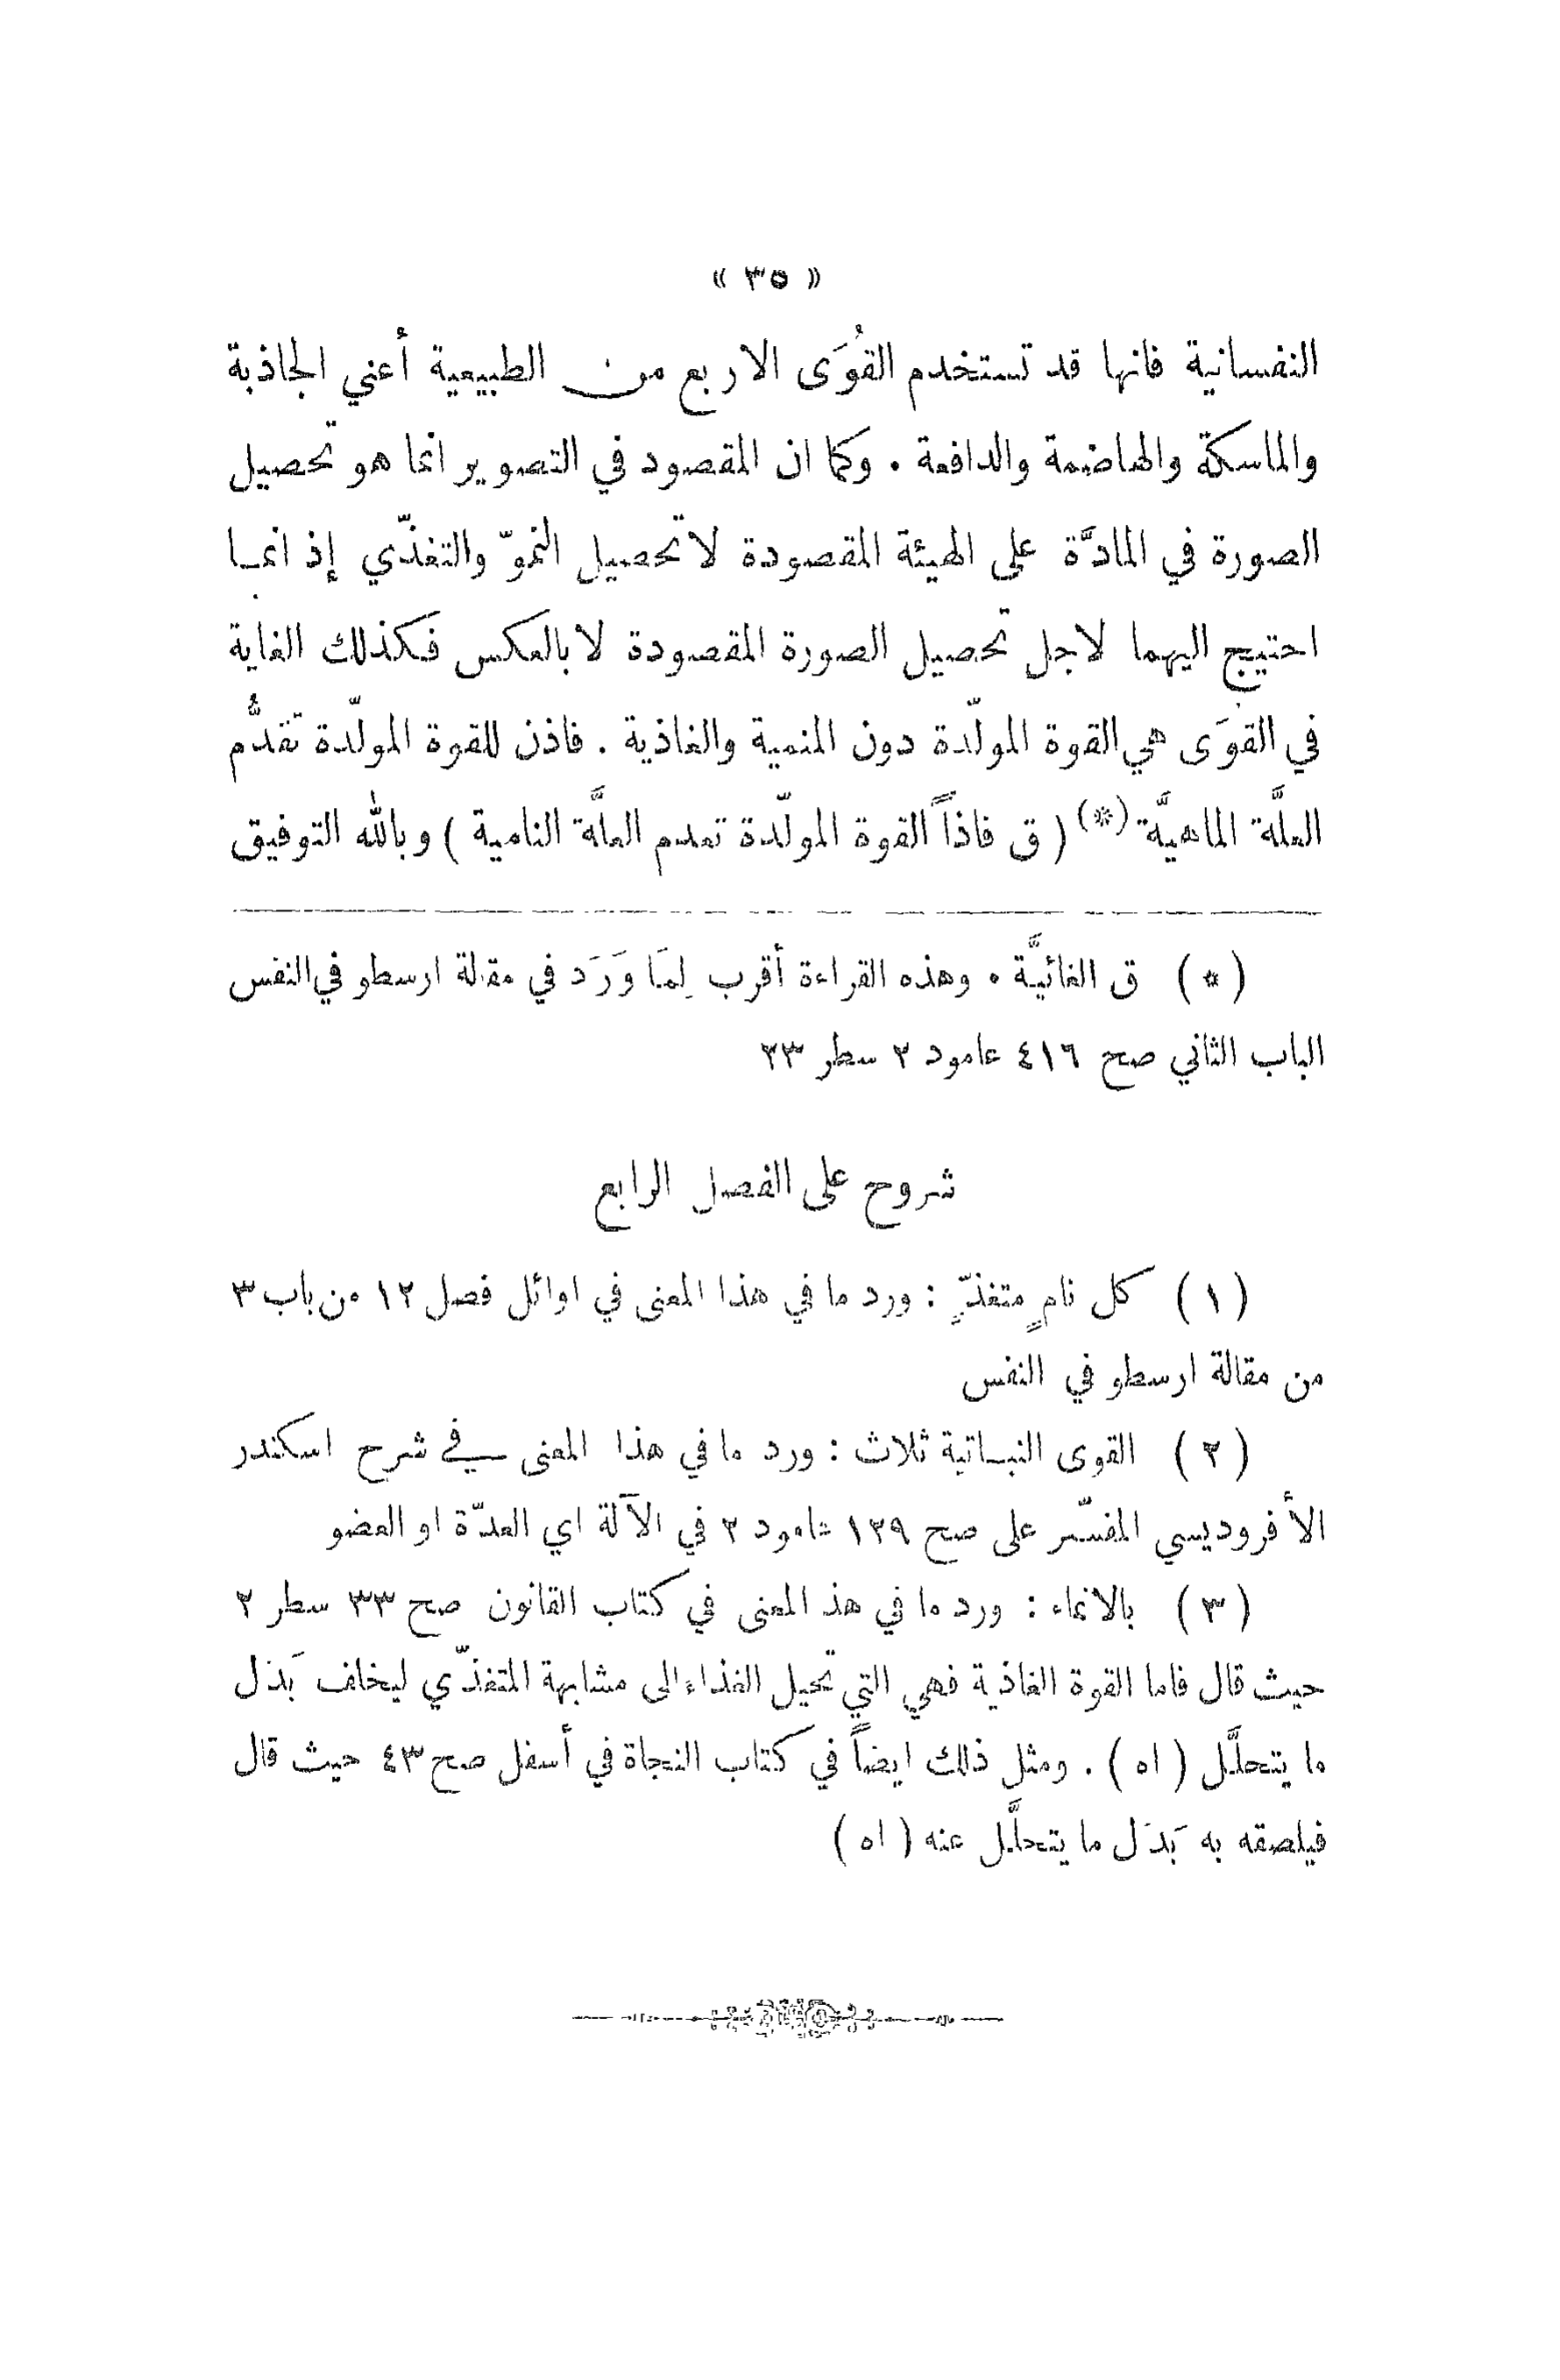 « ٣٥ »
النفسانية فانها قد تستخدم القُوَى الاربع من الطبيعية أعني الجاذبة
والماسكة والهاضمة والدافعة . وكما ان المقصود في التصوير انما هو تحصيل
الصورة في المادَّة على الهيئة المقصودة لا تحصيل النموّ والتغذّي إذ انما
احتيج اليهما لاجل تحصيل الصورة المقصودة لا بالعكس فكذلك الغاية
في القوَى هي القوة المولّدة دون المنمية والغاذية . فاذن للقوة المولّدة تقدُّم
العلَّة الماهيَّة (*) ( ق فاذاً القوة المولّدة تعدم العلَّة النامية ) وبالله التوفيق
( * ) ق الغائيَّة . وهذه القراءة أقرب لِمَا وَرَد في مقالة ارسطو في النفس
الباب الثاني صح ٤١٦ عامود ٢ سطر ٢٣
شروح على الفصل الرابع
( ١ ) كل نامٍ متغذّ : ورد ما في هذا المعنى في اوائل فصل ١٢ من باب ٣
من مقالة ارسطو في النفس
( ٢ ) القوى النباتية ثلاث : ورد ما في هذا المعنى في شرح اسكندر
الأفروديسي المفسّر على صح ١٣٩ عامود ٢ في الآلة اي العدّة او العضو
( ٣ ) بالانماء : ورد ما في هذ المعنى في كتاب القانون صح ٣٣ سطر ٢
حيث قال فاما القوة الغاذية فهي التي تحيل الغذاء الى مشابهة المتغذّي ليخلف بَدَل
ما يتحلَّل ( اه ) . ومثل ذلك ايضاً في كتاب النجاة في أسفل صح ٤٣ حيث قال
فيلصقه به بَدَل ما يتحلَّل عنه ( اه )